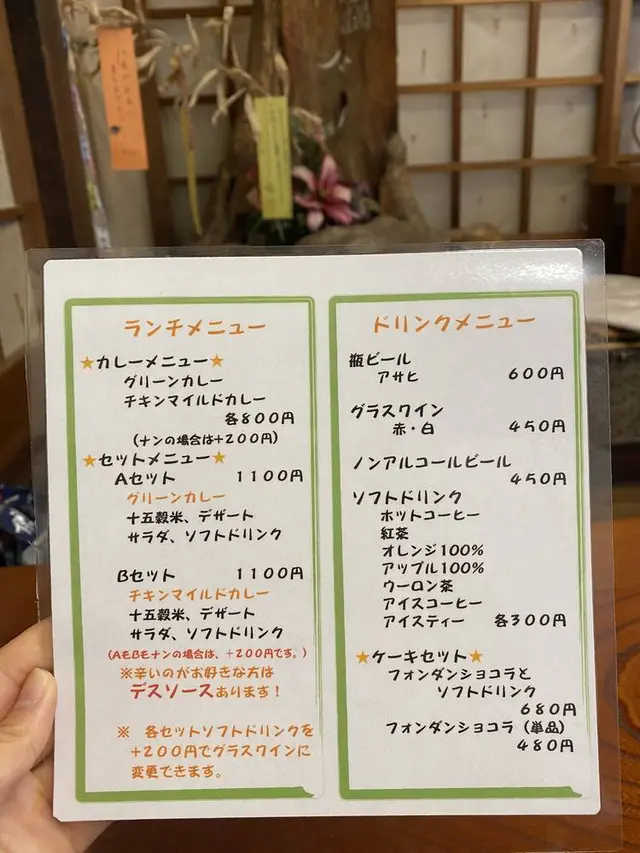 ランチメニュー
★カレーメニュー★
グリーンカレー
チキンマイルドカレー
各800円
(ナンの場合は+200円)
★セットメニュー★
Aセット 1100円
グリーンカレー
十五穀米、デザート
サラダ、ソフトドリンク
Bセット 1100円
チキンマイルドカレー
十五穀米、デザート
サラダ、ソフトドリンク
(AもBもナンの場合は、+200円です。)
※辛いのがお好きな方は
デスソースあります!
※ 各セットソフトドリンクを
+200円でグラスワインに
変更できます。
ドリンクメニュー
瓶ビール
アサヒ 600円
グラスワイン
赤・白 450円
ノンアルコールビール
450円
ソフトドリンク
ホットコーヒー
紅茶
オレンジ100%
アップル100%
ウーロン茶
アイスコーヒー
アイスティー 各300円
★ケーキセット★
フォンダンショコラと
ソフトドリンク
680円
フォンダンショコラ(単品)
480円